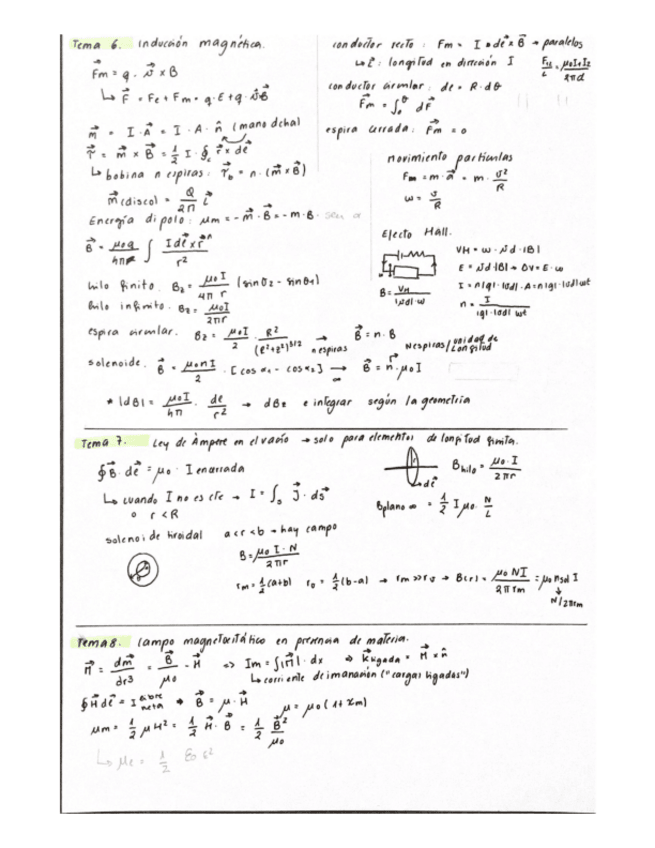 Tema 6. Inducción magnética.
F⃗m = q · v⃗ x B
↳ F⃗ = Fe + Fm = q·E + q·v⃗B⃗
m⃗ = I · A⃗ = I · A · n̂ (mano dcha)
τ⃗ = m⃗ x B⃗ = 1/2 I · ∮c r⃗ x dℓ⃗
↳ bobina n espiras: τ⃗b = n · (m⃗ x B⃗)
m⃗(disco) = Q/2Π L⃗
Energía dipolo: μm = -m⃗ · B⃗ = -m · B · sen α
B⃗ = μ0q/4π ∫ Idℓ⃗ x r̂/r²
hilo finito. Bz = μ0I/4π r (sinθ2 - sinθ1)
hilo infinito. Bz = μ0I/2πr
espira circular. Bz = μ0·I/2 · R²/(R²+z²)^3/2 → n espiras B⃗ = n · B
solenoide. B⃗ = μ0nI/2 · [cos α1 - cos α2] → ∞ B⃗ = n · μ0I
N espiras/unidad de longitud
* |dB| = μ0I/4π · dℓ/r² → dBz e integrar según la geometría
conductor recto: Fm = I · dℓ⃗ x B⃗ → paralelos
↳ ℓ⃗: longitud en dirección I F12/L = μ0I1I2/2πd
conductor circular: dℓ = R · dθ
F⃗m = ∫₀^θ dF⃗
espira cerrada: F⃗m = 0
movimiento partículas
Fm = m · a⃗ = m · v²/R
ω = v/R
Efecto Hall.
VH = w · vd · |B|
E = vd·|B| → ΔV = E · w
I = n|q| · |vd| · A = n|q| · |vd| wt
B = VH/|vd|·w
n = I/|q|·|vd| wt
Tema 7. Ley de Ampere en el vacío → solo para elementos de longitud finita.
∮B⃗ · dℓ⃗ = μ0 · I encerrada
↳ cuando I no es cte → I = ∫s J⃗ · ds⃗
o r < R
dℓ⃗
Bhilo = μ0·I/2πr
Bplano ∞ = 1/2 I μ0 · N/L
solenoide toroidal a<r<b → hay campo
B = μ0 I·N/2πr
rm = 1/2(a+b) r0 = 1/2(b-a) → rm >> r0 → B(r) = μ0 NI/2π rm = μ0 nsol I
↓
N/2πrm
Tema 8. Campo magnetostático en presencia de materia.
M⃗ = dm⃗/dr³ = B⃗/μ0 - H⃗ => Im = ∫|M⃗| · dx => K⃗ligada = M⃗ x n̂
↳ corriente de imanación ("cargas ligadas")
∮H⃗dℓ⃗ = I libre neta → B⃗ = μ · H⃗ μ = μ0(1+χm)
μm = 1/2 μH² = 1/2 H⃗ · B⃗ = 1/2 B⃗²/μ0
↳ μe = 1/2 ε0 ε²